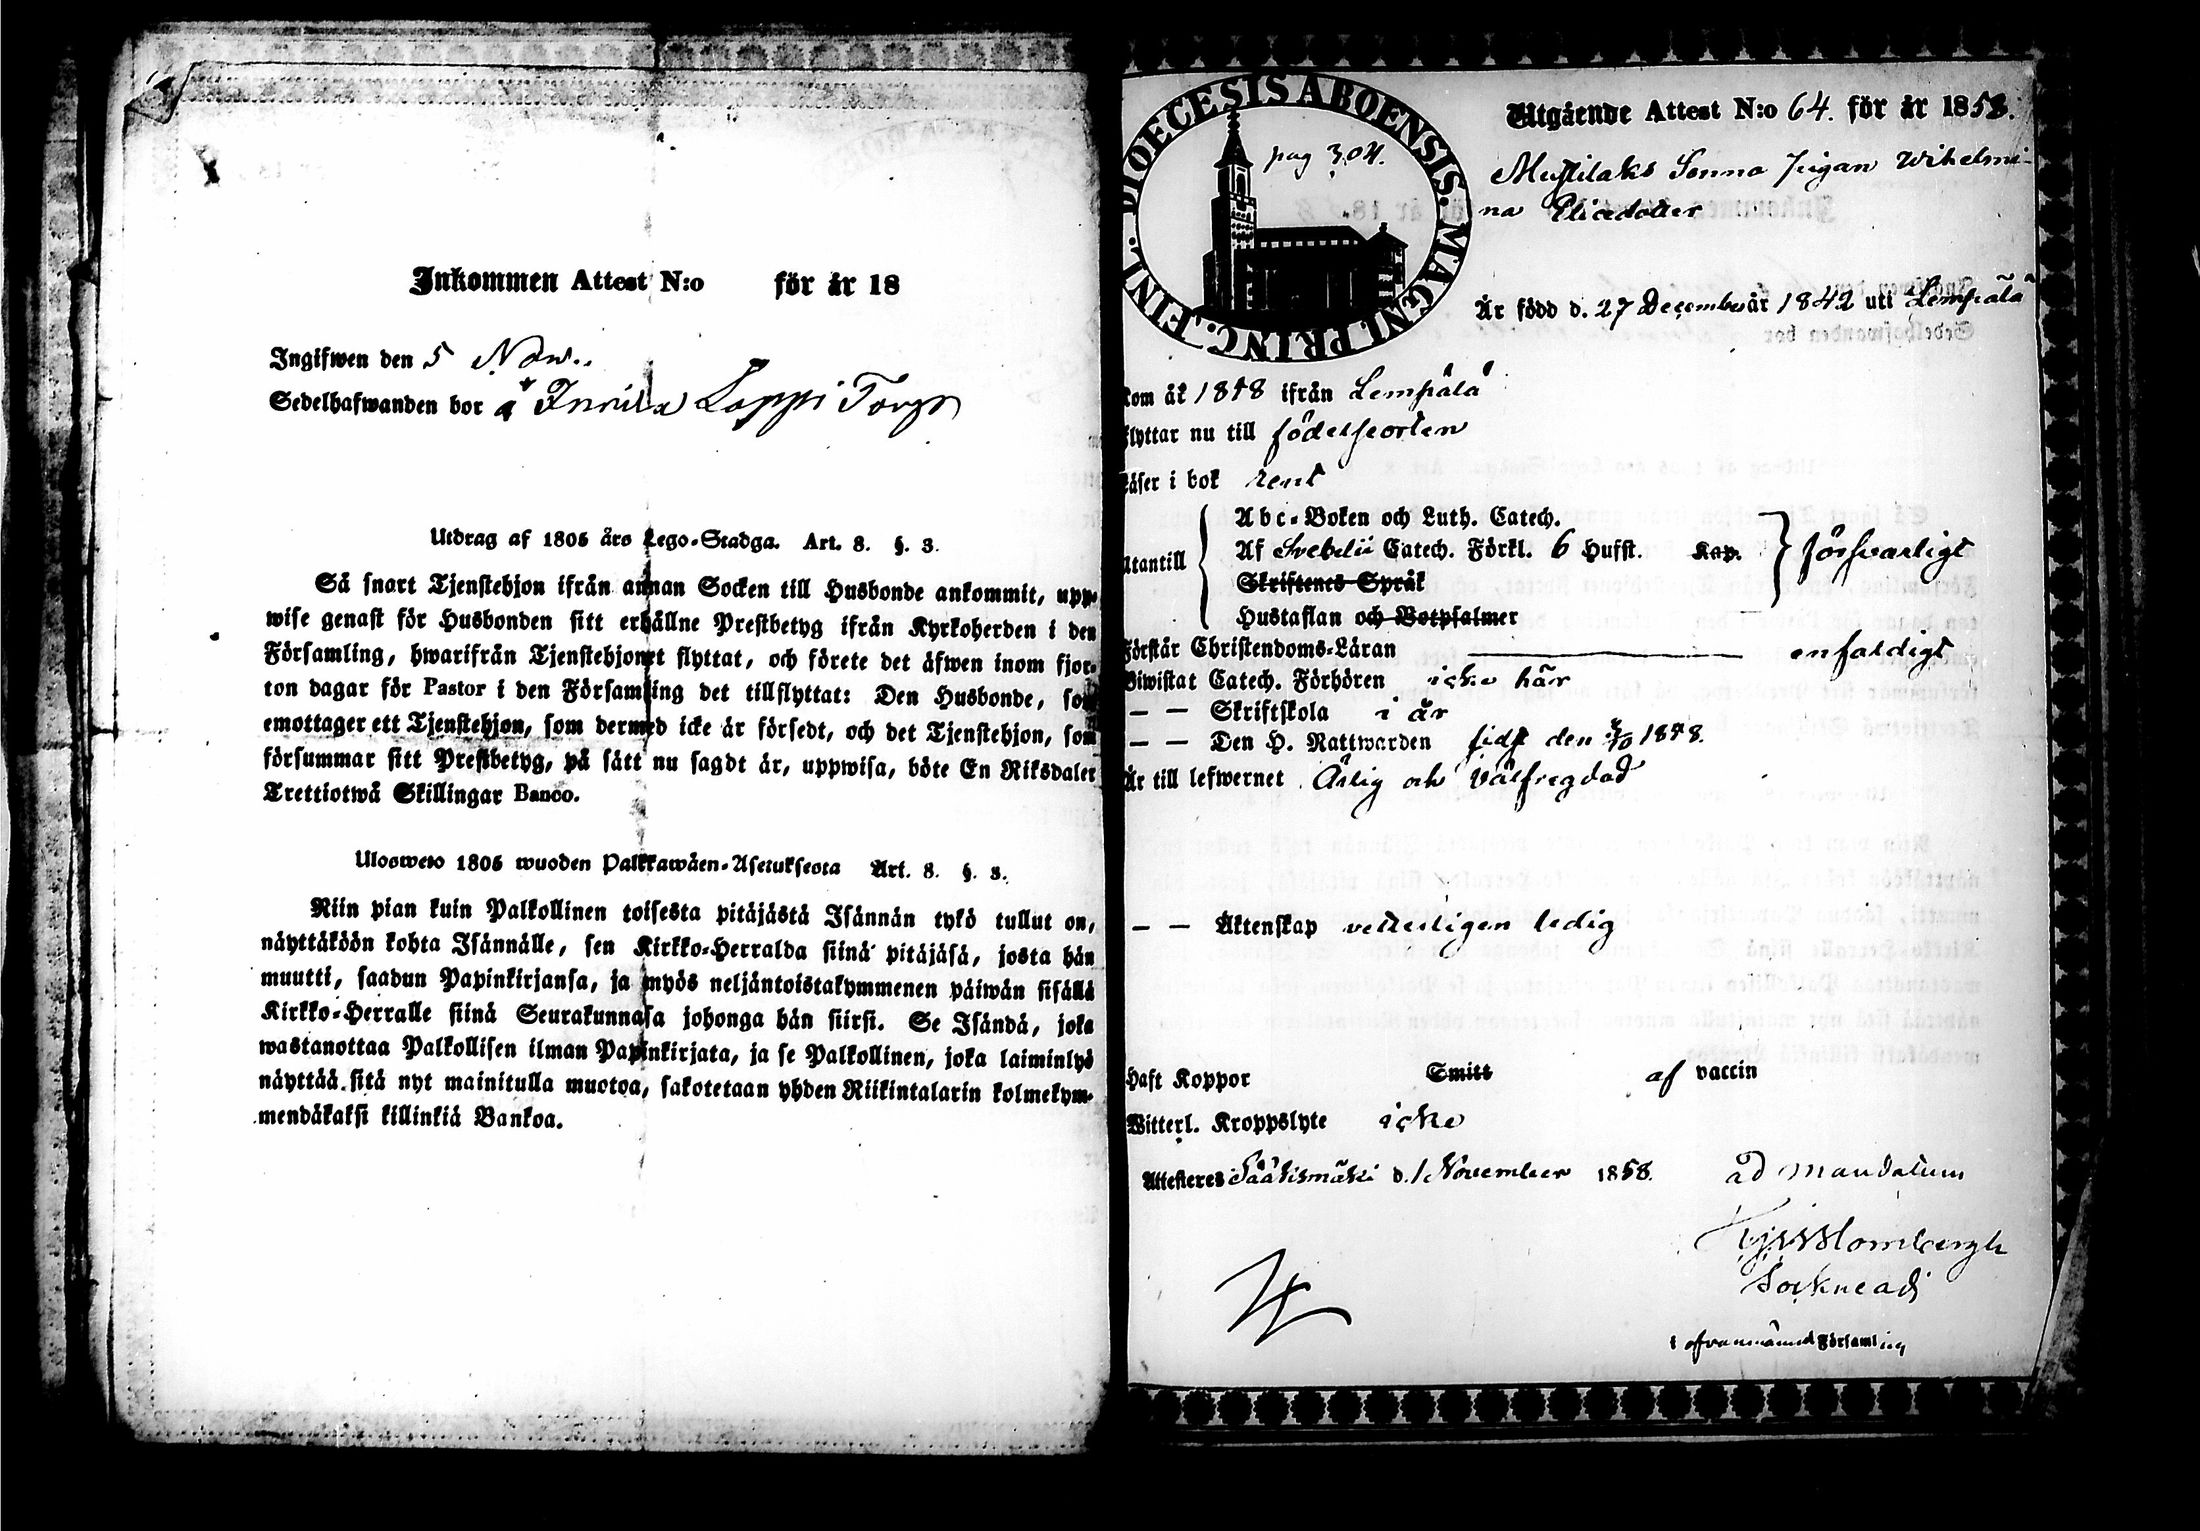 Inkommen Attest N:o för år 18
Ingifwen den 5 Nov.
Sedelhafwanden bor å Innila Lappi Torp
Utdrag af 1805 års Lego-Stadga. Art. 8. §. 3.
Så snart Tjenstehjon ifrån annan Socken till Husbonde ankommit, upp-
wise genast för Husbonden sitt erhållne Prestbetyg ifrån Kyrkoherden i den
Församling, hwarifrån Tjenstehjonet flyttat, och förete det äfwen inom fjor-
ton dagar för Pastor i den Församling det tillflyttat: Den Husbonde, som
emottager ett Tjenstehjon, som dermed icke är försedt, och det Tjenstehjon, som
försummar sitt Prestbetyg, på sätt nu sagdt är, uppwisa, böte En Riksdaler
Trettiotwå Skillingar Banco.
Ulosweto 1805 wuoden Palkkawäen-Asetuksesta Art. 8. §. 3.
Niin pian kuin Palkollinen toisesta pitäjästä Isännän tykö tullut on,
näyttäköön kohta Isännälle, sen Kirkko-Herralda siinä pitäjäsä, josta hän
muutti, saadun Papinkirjansa, ja myös neljäntoistakymmenen päiwän sisällä
Kirkko-Herralle siinä Seurakunnasa johonga hän siirsi. Se Isändä, joka
wastanottaa Palkollisen ilman Papinkirjata, ja se Palkollinen, joka laiminlyö
näyttää sitä nyt mainitulla muotoa, sakotetaan yhden Riikintalarin kolmekym-
mendäkaksi killinkiä Bankoa.
DIOECESIS ABOENSIS. MAGNI PRINC. FINL.
pag 304.
Utgående Attest N:o 64. för år 1858.
Mustilaks Sonna Pigan Wilhelmi-
na Elicedotter
Är född d. 27 December år 1842 uti Lempälä
Kom år 1848 ifrån Lempälä
Flyttar nu till födelseorten
Läser i bok rent
Utantill
Abc-Boken och Luth. Catech.
Af Svebelii Catech. Förkl. 6 Hufst. Kap. försvarligt
Skriftenes Språk
Hustaflan och Botpsalmer
Förstår Christendoms-Läran enfaldigt
Biwistat Catech. Förhören icke här
— — Skriftskola i år
— — Den H. Nattwarden sidst den 3/10 1858.
Är till lefwernet Ärlig och Välfregdad
— — Äktenskap vetterligen ledig
Haft Koppor Smitt af vaccin
Witterl. Kroppslyte icke
Attesteras Sääksmäki d. 1 November 1858. ad mandatum
Blombergh
Sockneadj
i ofvannämnd Församling